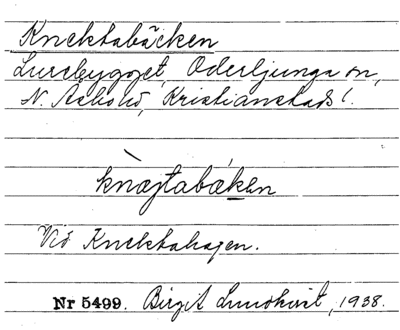 Knektabäcken
Lursbygget, Oderljunga sn,
N. Åsbo hd, Kristianstads l.
knæ̀jtabáken
Vid Knektahagen.
Nr 5499. Birgit Lundkvist, 1938.